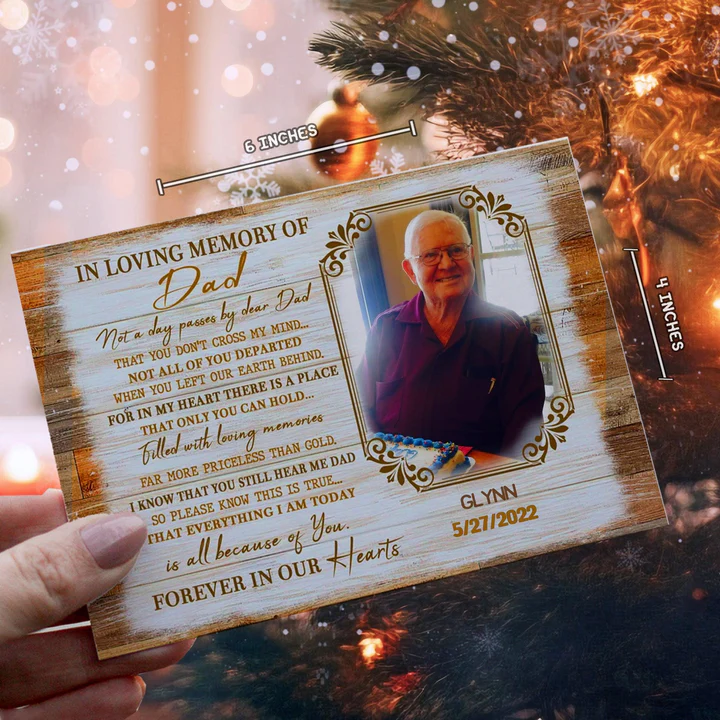 6 INCHES
4 INCHES
IN LOVING MEMORY OF
Dad
Not a day passes by dear Dad
THAT YOU DON'T CROSS MY MIND...
NOT ALL OF YOU DEPARTED
WHEN YOU LEFT OUR EARTH BEHIND.
FOR IN MY HEART THERE IS A PLACE
THAT ONLY YOU CAN HOLD...
Filled with loving memories
FAR MORE PRICELESS THAN GOLD.
I KNOW THAT YOU STILL HEAR ME DAD
SO PLEASE KNOW THIS IS TRUE...
THAT EVERYTHING I AM TODAY
is all because of You.
FOREVER IN OUR Hearts
GLYNN
5/27/2022